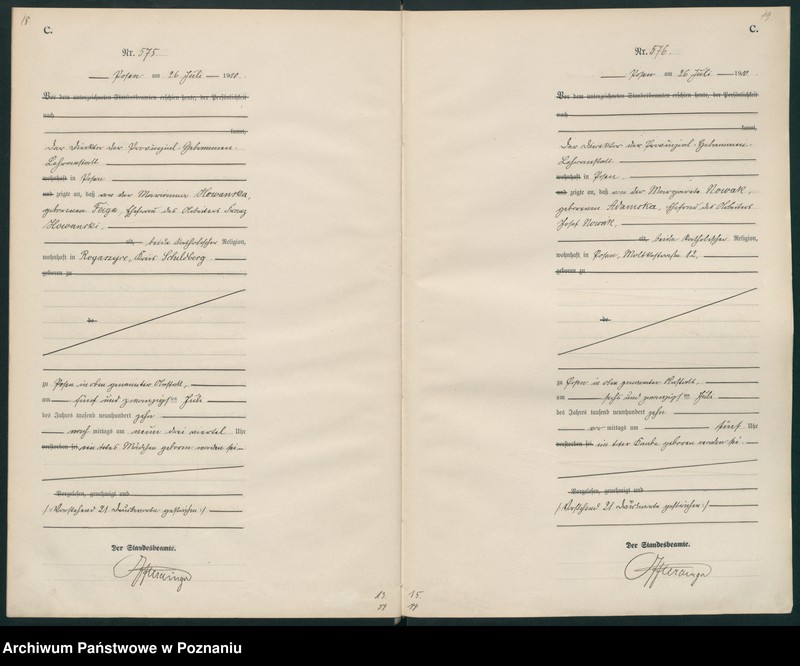 18
C.
Nr. 575
Posen am 26 Juli 1910.
Vor dem unterzeichneten Standesbeamten erschien heute, der Persönlichkeit
nach
kannt,
Der Direktor der Provinzial-Hebammen-
Lehranstalt
wohnhaft in Posen
und zeigte an, daß von der Marianna Howanska,
geborenen Feiga, Ehefrau des Arbeiters
Howanski,
beide katholischer Religion,
wohnhaft in Rogaszyce, Kreis Schildberg
geboren zu
de
zu Posen in oben genannter Anstalt,
am fünf und zwanzigsten Juli
des Jahres tausend neunhundert zehn
nach mittags um neun drei viertel Uhr
verstorben sei ein totes Mädchen geboren worden sei
Vorgelesen, genehmigt und
/: Vorstehend 21 Druckworte gestrichen :/
Der Standesbeamte.
13.
19
C.
Nr. 576
Posen am 26 Juli 1910
Vor dem unterzeichneten Standesbeamten erschien heute, der Persönlichkeit
nach
kannt,
Der Direktor der Provinzial-Hebammen-
Lehranstalt
wohnhaft in Posen
und zeigte an, daß von der Margarete Nowak,
geborenen Adamska, Ehefrau des Arbeiters
Josef Nowak,
beide katholischer Religion,
wohnhaft in Posen, Moltkestraße 12,
geboren zu
de
zu Posen in oben genannter Anstalt,
am sechs und zwanzigsten Juli
des Jahres tausend neunhundert zehn
vor mittags um fünf Uhr
verstorben sei ein toter Knabe geboren worden sei.
Vorgelesen, genehmigt und
/: Vorstehend 21 Druckworte gestrichen :/
Der Standesbeamte.
15.
Archiwum Państwowe w Poznaniu